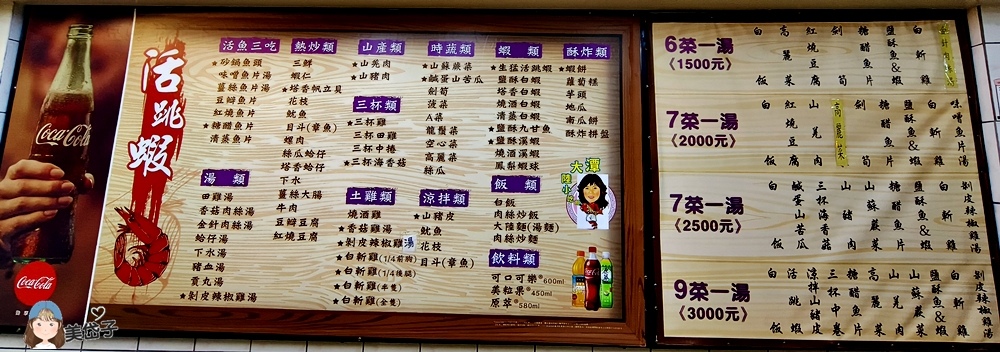 Coca-Cola
Coca-Cola
活跳蝦
活魚三吃
★砂鍋魚頭
味噌魚片湯
薑絲魚片湯
豆瓣魚片
紅燒魚片
★糖醋魚片
清蒸魚片
湯 類
田雞湯
香菇肉絲湯
金針肉絲湯
蛤仔湯
下水湯
豬血湯
貢丸湯
★剝皮辣椒雞湯
熱炒類
三鮮
蝦仁
★塔香帆立貝
花枝
魷魚
目斗(章魚)
螺肉
絲瓜蛤仔
塔香蛤仔
下水
薑絲大腸
牛肉
豆瓣豆腐
紅燒豆腐
山產類
★山羌肉
★山豬肉
三杯類
★三杯雞
三杯田雞
三杯中捲
★三杯海香菇
土雞類
燒酒雞
★香菇雞湯
★剝皮辣椒雞湯
★白斬雞(1/4前胸)
★白斬雞(1/4後腿)
★白斬雞(半隻)
★白斬雞(全隻)
時蔬類
★山蘇蕨菜
★鹹蛋山苦瓜
劍筍
菠菜
A菜
龍鬚菜
空心菜
高麗菜
絲瓜
涼拌類
★山豬皮
魷魚
花枝
目斗(章魚)
蝦 類
★生猛活跳蝦
鹽酥白蝦
塔香白蝦
燒酒白蝦
清蒸白蝦
★鹽酥九甘魚
★鹽酥溪蝦
燒酒溪蝦
鳳梨蝦球
飯 類
白飯
肉絲炒飯
大陸麵(湯麵)
肉絲炒麵
飲料類
可口可樂®600ml
美粒果®450ml
原萃®580ml
酥炸類
★蝦餅
蘿蔔糕
芋頭
地瓜
南瓜餅
酥炸拼盤
大潭
陸小
6菜一湯
〈1500元〉
白飯
高麗菜
紅燒豆腐
劍筍
糖醋魚片
鹽酥魚&蝦
白斬雞
7菜一湯
〈2000元〉
白飯
紅燒豆腐
山羌肉
高麗菜
劍筍
糖醋魚片
鹽酥魚&蝦
白斬雞
味噌魚片湯
7菜一湯
〈2500元〉
白飯
鹹蛋山苦瓜
三杯海香菇
山豬肉
山蘇蕨菜
糖醋魚片
鹽酥魚&蝦
白斬雞
剝皮辣椒雞湯
9菜一湯
〈3000元〉
白飯
活跳蝦
涼拌山豬皮
三杯中卷
糖醋魚片
高麗菜
山羌肉
山蘇蕨菜
鹽酥魚&蝦
白斬雞
剝皮辣椒雞湯
美岱子